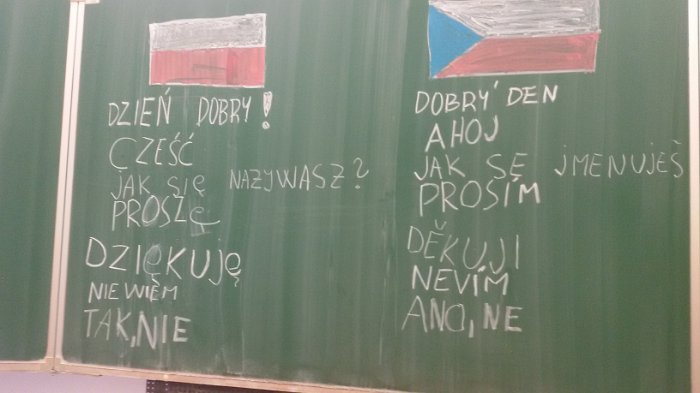 DZIEŃ DOBRY!
CZEŚĆ
JAK SIĘ NAZYWASZ?
PROSZĘ
DZIĘKUJĘ
NIE WIEM
TAK, NIE
DOBRY' DEN
AHOJ
JAK SE JMENUJEŠ
PROSÍM
DĚKUJI
NEVÍM
ANO, NE